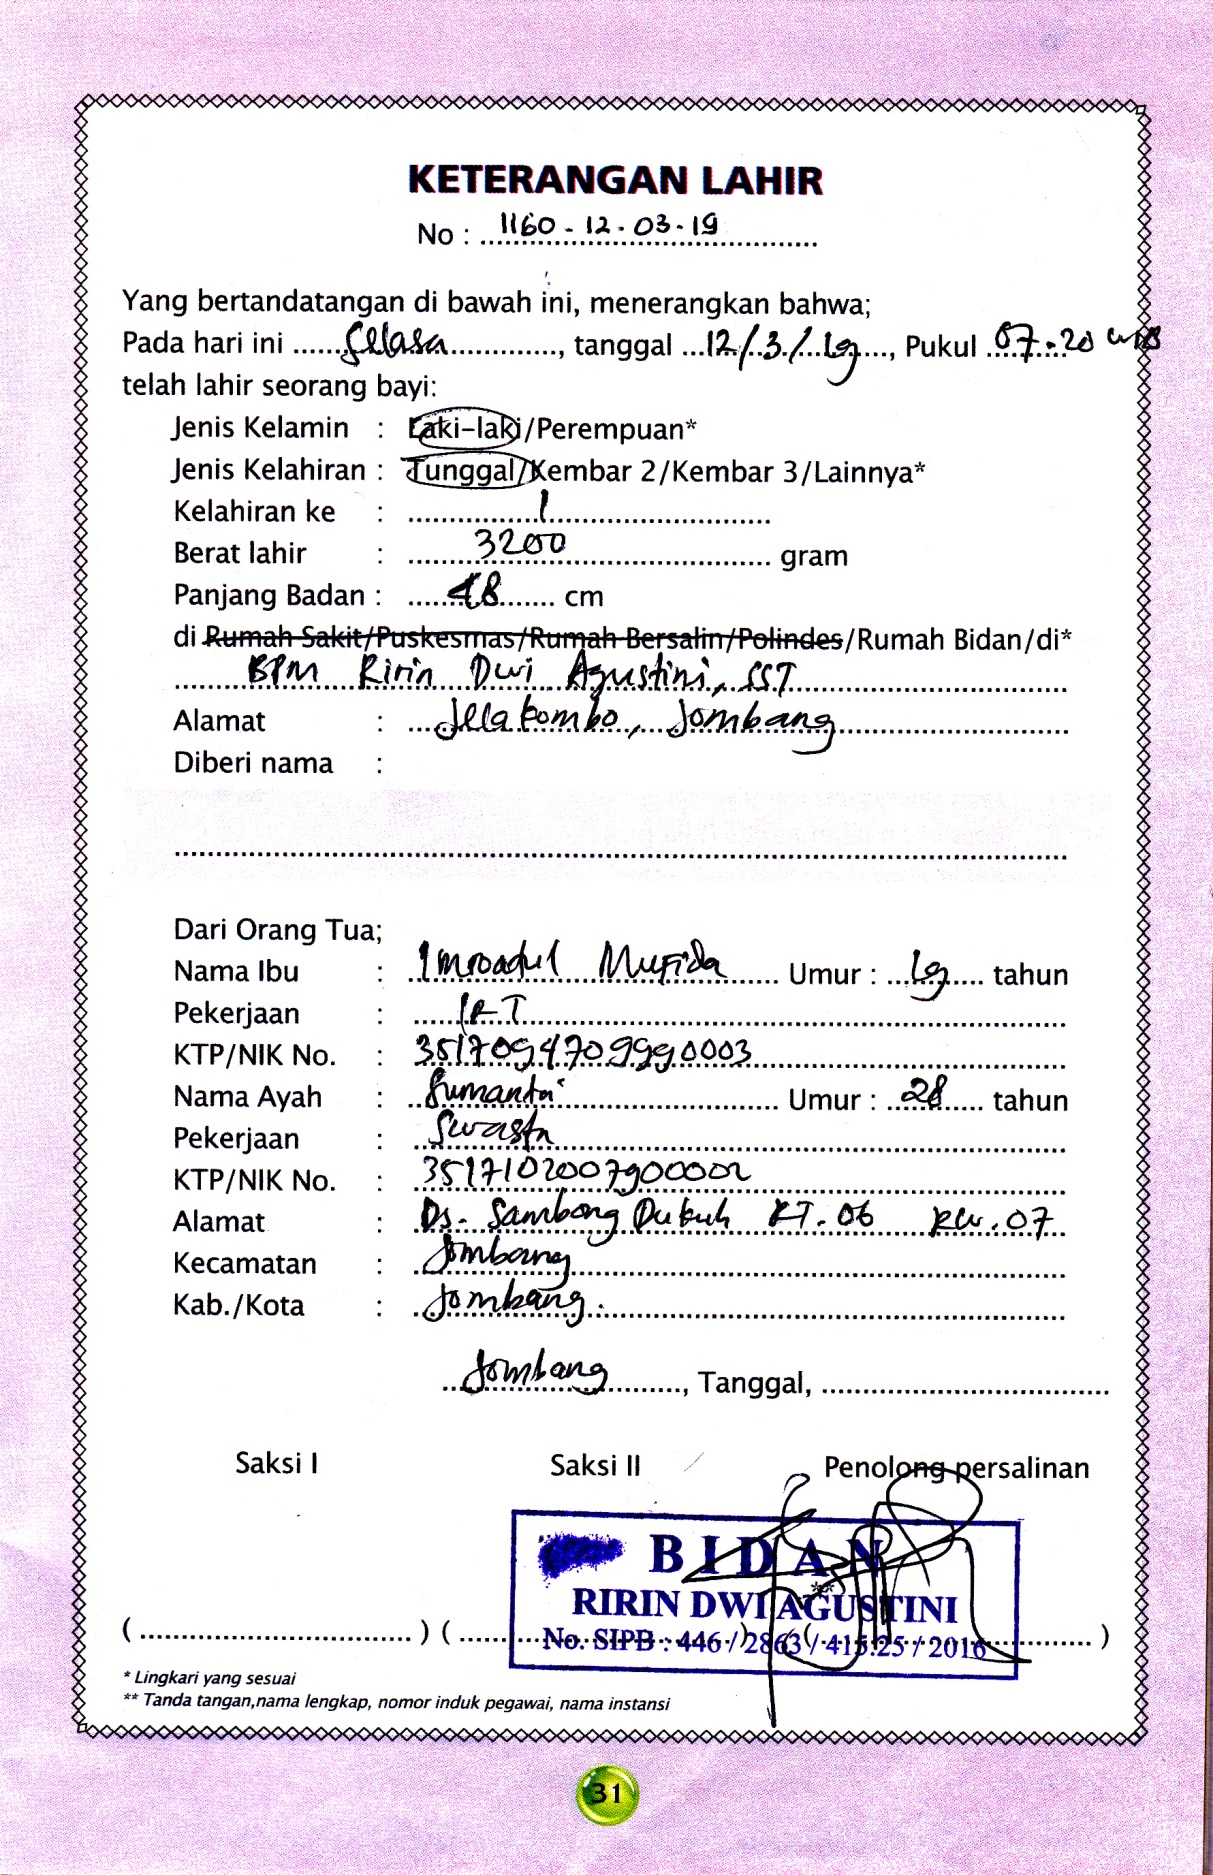 KETERANGAN LAHIR
No : 1160 - 12 - 03 - 19
Yang bertandatangan di bawah ini, menerangkan bahwa;
Pada hari ini Selasa, tanggal 12/3/19, Pukul 07.20 WIB
telah lahir seorang bayi:
Jenis Kelamin : Laki-laki/Perempuan*
Jenis Kelahiran : Tunggal/Kembar 2/Kembar 3/Lainnya*
Kelahiran ke : 1
Berat lahir : 3200 gram
Panjang Badan : 48 cm
di Rumah Sakit/Puskesmas/Rumah Bersalin/Polindes/Rumah Bidan/di*
BPM Ririn Dwi Agustini, SST
Alamat : Jelakombo, Jombang
Diberi nama :
Dari Orang Tua;
Nama Ibu : Imroadul Mufida Umur : 19 tahun
Pekerjaan : IRT
KTP/NIK No. : 3517094709990003
Nama Ayah : Sumantri Umur : 28 tahun
Pekerjaan : Swasta
KTP/NIK No. : 3517102007900002
Alamat : Ds. Sambong Dukuh RT. 06 RW. 07
Kecamatan : Jombang
Kab./Kota : Jombang.
Jombang, Tanggal,
Saksi I Saksi II Penolong persalinan
BIDAN
RIRIN DWI AGUSTINI
No. SIPB : 446 / 2863 / 415.25 / 2016
* Lingkari yang sesuai
** Tanda tangan,nama lengkap, nomor induk pegawai, nama instansi
31